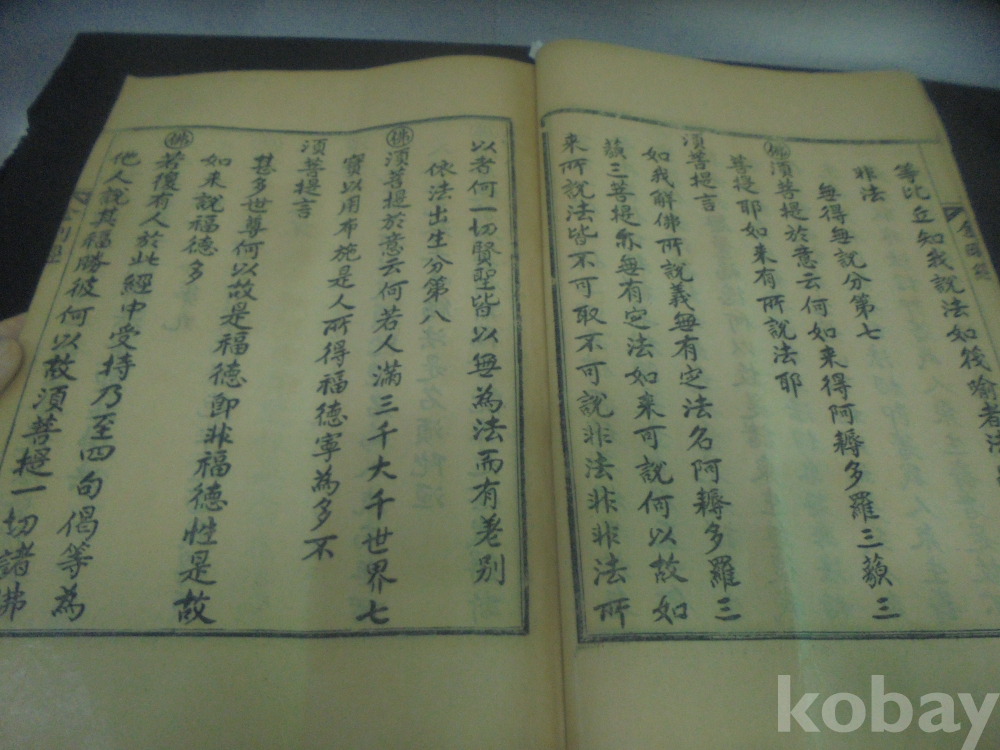 等比丘知我說法如筏喻者法
非法
無得無說分第七
佛 須菩提於意云何如來得阿耨多羅三藐三
菩提耶如來有所說法耶
須菩提言
如我解佛所說義無有定法名阿耨多羅三
藐三菩提亦無有定法如來可說何以故如
來所說法皆不可取不可說非法非非法所
以者何一切賢聖皆以無為法而有差別
依法出生分第八
佛 須菩提於意云何若人滿三千大千世界七
寶以用布施是人所得福德寧為多不
須菩提言
甚多世尊何以故是福德卽非福德性是故
如來說福德多
佛 若復有人於此經中受持乃至四句偈等為
他人說其福勝彼何以故須菩提一切諸佛
kobay